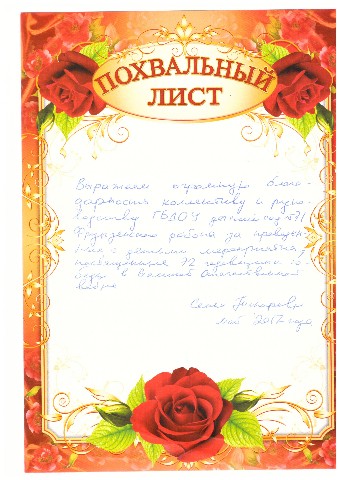 ПОХВАЛЬНЫЙ
ЛИСТ
Выражаем огромную благо-
дарность коллективу и руко-
водству ГБДОУ детский сад №71
Фрунзенского района за проведен-
ные с детьми мероприятия,
посвященные 72 годовщине по-
беды в Великой Отечественной
Войне
Семья
май 2017 года